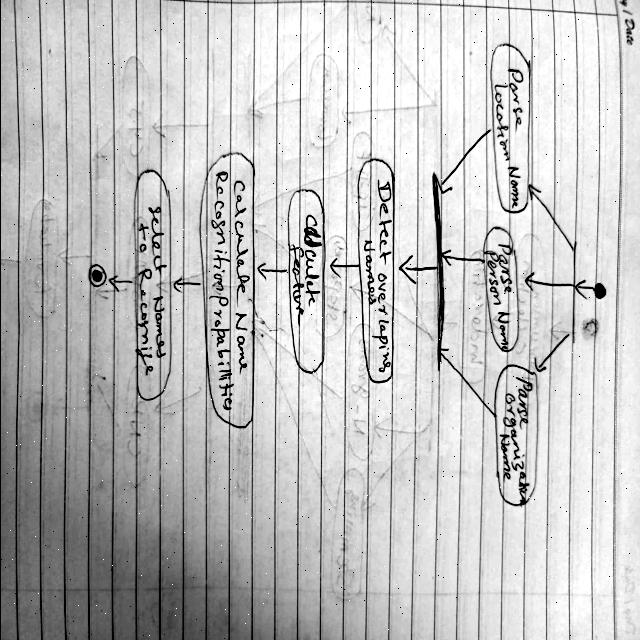 / Date
Parse
Location Name
Parse
Person Name
Parse
Organization
Name
Detect overlaping
Names
Calculate
feature
Calculate Name
Recognition Probabilities
Select Names
to Recognize